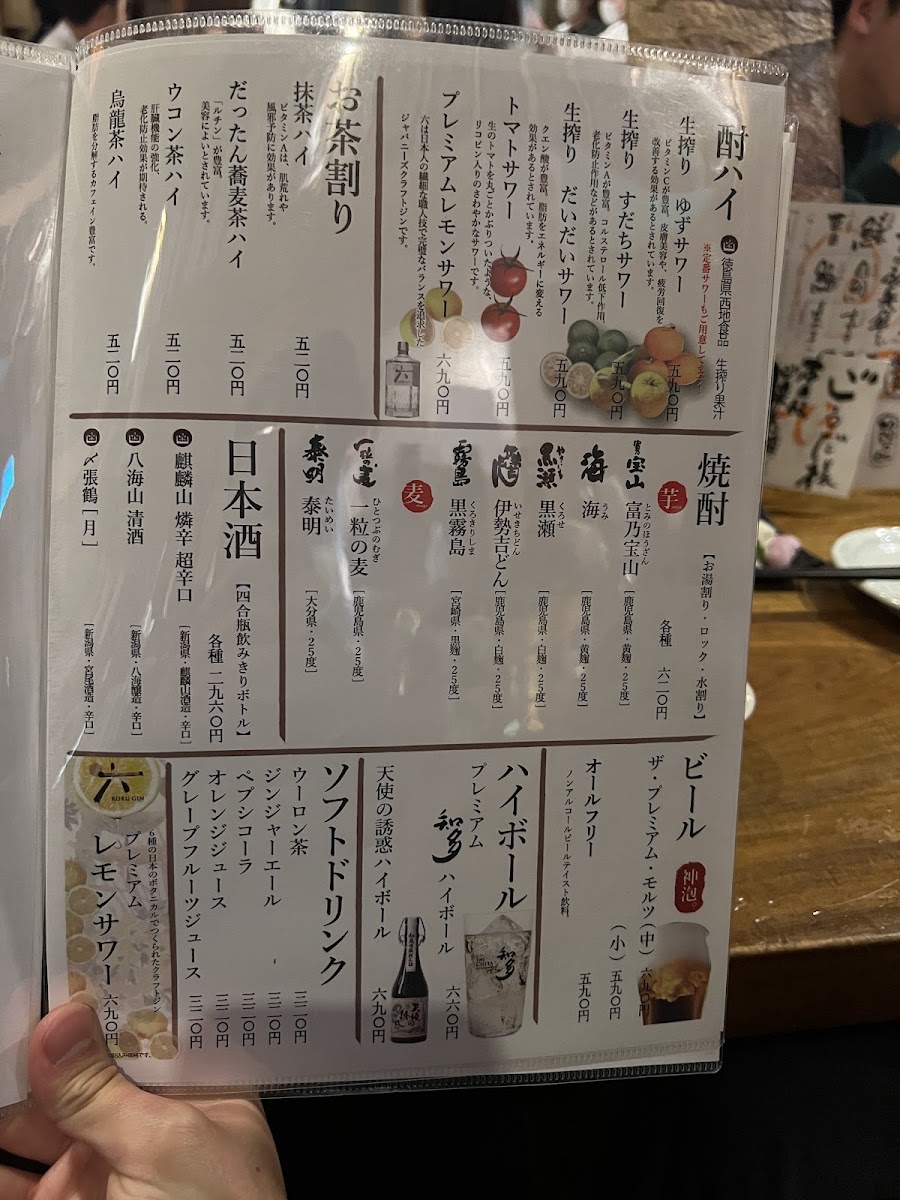 酎ハイ
徳島県西地食品 生搾り果汁
※定番サワーもご用意してます。
生搾り ゆずサワー
ビタミンCが豊富、皮膚美容や、疲労回復を
改善する効果があるとされています。
五九〇円
生搾り すだちサワー
ビタミンAが豊富、コルステロール低下作用、
老化防止作用などがあるとされています。
五九〇円
生搾り だいだいサワー
クエン酸が豊富、脂肪をエネルギーに変える
効果があるとされています。
五九〇円
トマトサワー
生のトマトを丸ごとかぶりついたような、
リコピン入りのさわやかなサワーです。
五九〇円
プレミアムレモンサワー
六は日本人の繊細な職人技で完璧なバランスを追求した
ジャパニーズクラフトジンです。
六九〇円
六
お茶割り
抹茶ハイ
ビタミンAは、肌荒れや
風邪予防に効果があります。
五二〇円
だったん蕎麦茶ハイ
「ルチン」が豊富、
美容によいとされています。
五二〇円
ウコン茶ハイ
肝臓機能の強化、
老化防止効果が期待される。
五二〇円
烏龍茶ハイ
脂肪を分解するカフェイン豊富です。
五二〇円
焼酎
【お湯割り・ロック・水割り】
各種 六二〇円
芋
寳宝山
富乃宝山
とみのほうざん
[鹿児島県・黄麹・25度]
海
海
うみ
[鹿児島県・黄麹・25度]
黒瀬
黒瀬
くろせ
[鹿児島県・白麹・25度]
伊勢吉どん
いせきちどん
[鹿児島県・白麹・25度]
霧島
黒霧島
くろきりしま
[宮崎県・黒麹・25度]
麦
一粒の麦
一粒の麦
ひとつぶのむぎ
[鹿児島県・25度]
泰明
泰明
たいめい
[大分県・25度]
日本酒
【四合瓶飲みきりボトル】
各種 二九六〇円
麒麟山 燐辛 超辛口
[新潟県・麒麟山酒造・辛口]
八海山 清酒
[新潟県・八海醸造・辛口]
〆張鶴[月]
[新潟県・宮尾酒造・辛口]
ビール
神泡。
ザ・プレミアム・モルツ(中)
六九〇円
(小)
五九〇円
オールフリー
ノンアルコールビールテイスト飲料
五九〇円
ハイボール
プレミアム
知多 ハイボール
六六〇円
知多
天使の誘惑ハイボール
六九〇円
ソフトドリンク
ウーロン茶
三二〇円
ジンジャーエール
三二〇円
ペプシコーラ
三二〇円
オレンジジュース
三二〇円
グレープフルーツジュース
三二〇円
六
ROKU GIN
6種の日本のボタニカルでつくられたクラフトジン
プレミアム
レモンサワー
六九〇円
税込み価格です。